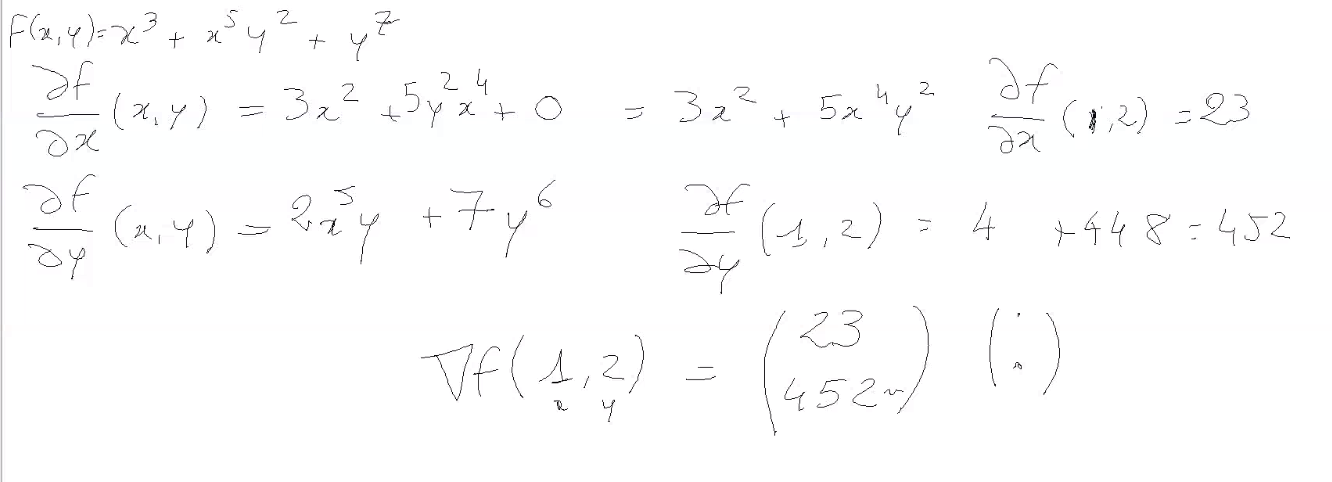 F(x,y)=x³ + x⁵y² + y⁷
∂f/∂x (x,y) = 3x² + 5y²x⁴ + 0 = 3x² + 5x⁴y² ∂f/∂x (1,2) = 23
∂f/∂y (x,y) = 2x⁵y + 7y⁶ ∂f/∂y (1,2) = 4 + 448 = 452
∇f(1,2) = (23 452) (: )
x y